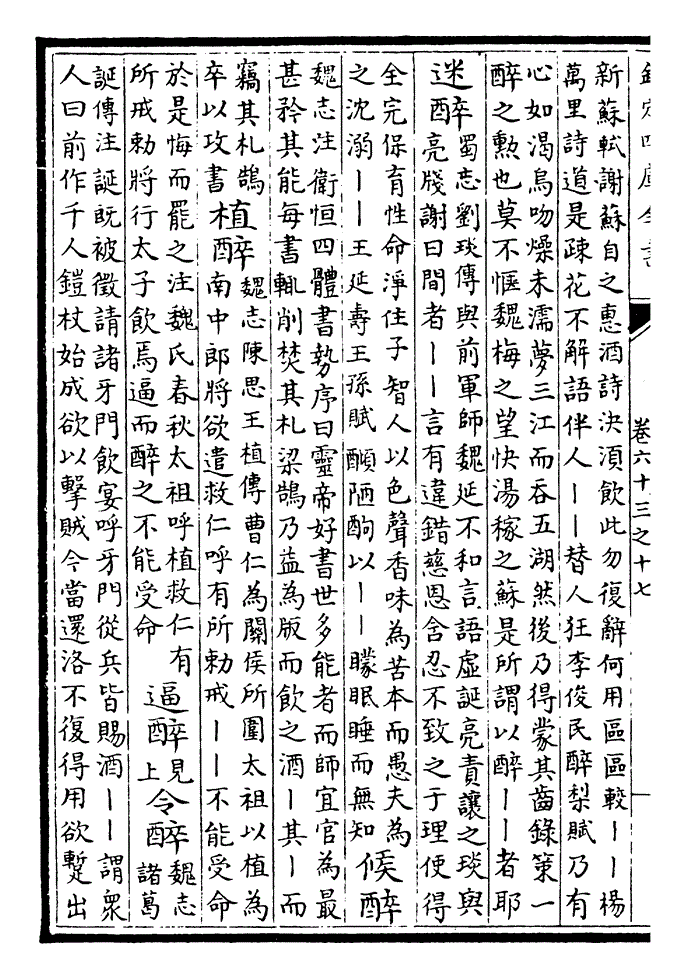 欽定四庫全書
卷六十三之十七
新蘇軾謝蘇自之惠酒詩決須飲此勿復辭何用區區較丨丨楊
萬里詩道是疎花不解語伴人丨丨替人狂李俊民醉梨賦乃有
心如渴烏吻燥未濡夢三江而吞五湖然後乃得蒙其齒錄策一
醉之勲也莫不愜魏梅之望快湯稼之蘇是所謂以醉丨丨者耶
迷醉
蜀志劉琰傳與前軍師魏延不和言語虛誕亮責讓之琰與
亮牋謝曰間者丨丨言有違錯慈恩含忍不致之于理使得
全完保育性命淨住子智人以色聲香味為苦本而愚夫為
之沈溺丨丨王延壽王孫賦陋酗以丨丨矇眠睡而無知
俟醉
魏志注衛恒四體書勢序曰靈帝好書世多能者而師宜官為最
甚矜其能每書輒削焚其札梁鵠乃益為版而飲之酒丨其丨而
竊其札鵠
卒以攻書
植醉
魏志陳思王植傳曹仁為關侯所圍太祖以植為
南中郎將欲遣救仁呼有所勅戒丨丨不能受命
於是悔而罷之注魏氏春秋太祖呼植救仁有
所戒勅將行太子飲焉逼而醉之不能受命
逼醉
見
上
令醉
魏志
諸葛
誕傳注誕既被徵請諸牙門飲宴呼牙門從兵皆賜酒丨丨謂衆
人曰前作千人鎧杖始成欲以擊賊今當還洛不復得用欲蹔出